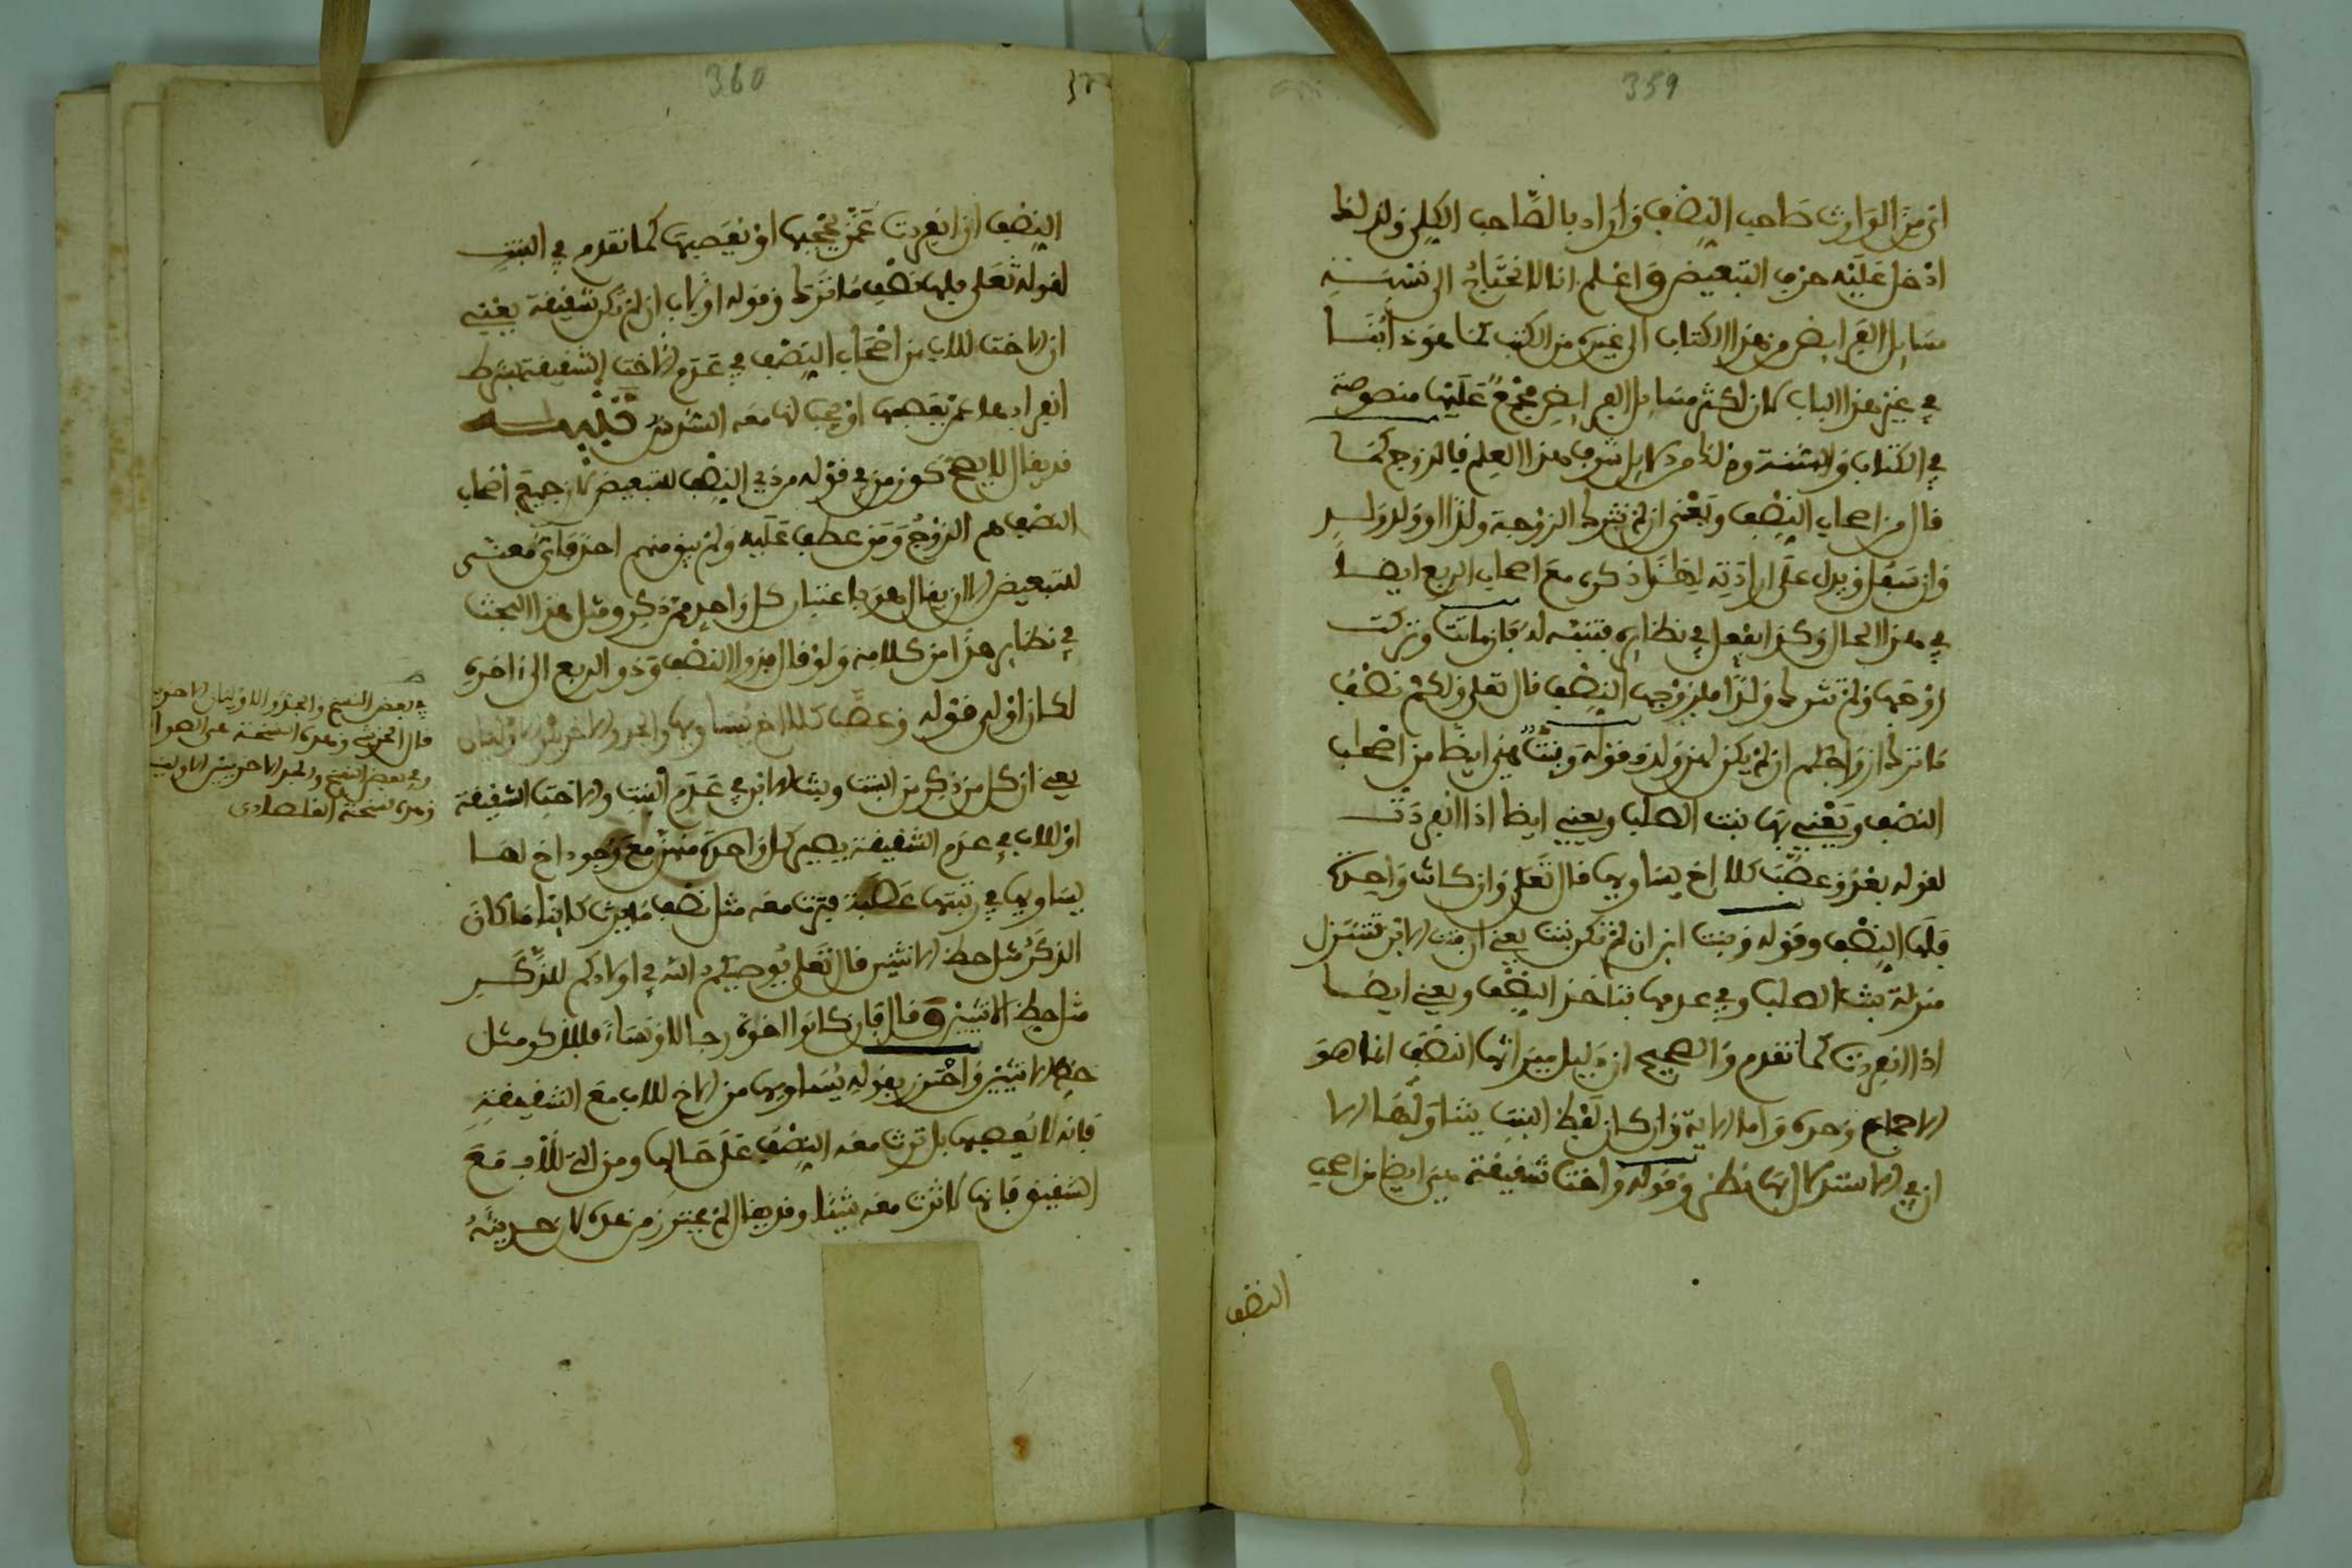 359
اي من الوارث صاحب النصف وأراد بالصاحب الكلي ولذلك
ادخل عليه حرف التبعيض واعلم انا لا نحتاج الى نسبة
مسايل الفرايض من هذا الكتاب الى غيره من الكتب كما هو دأبنا
في غير هذا الباب لان اكثر مسايل الفرايض مجمع عليها منصوصة
في الكتاب والسنة وذلك من دلايل شرف هذا العلم فالزوج كما
قال من اصحاب النصف ويعني ان لم تترك الزوجة ولدا او ولد ولد
وان سفل ويدل على ارادته لذلك ذكره مع اصحاب الربع ايضا
في هذا الحال وكذا يفعل في نظايره فتنبه له فان ماتت وتركت
زوجها ولم تترك ولدا فلزوجها النصف قال تعلى ولكم نصف
ما ترك ازواجكم ان لم يكن لهن ولد وقوله وبنت هي ايضا من اصحاب
النصف ويعني بها بنت الصلب ويعني ايضا اذا انفردت
لقوله بعد وعصب كلا اخ يساويها قال تعلى وان كانت واحدة
فلها النصف وقوله وبنت ابن ان لم تكن بنت يعني ان بنت الابن تتنزل
منزلة بنت الصلب في عدمها فتاخذ النصف ويعني ايضا
اذا انفردت كما تقدم والصحيح ان دليل ميراثها النصف انما هو
الاجماع وحده واما الاية وان كان لفظ البنت يتناولها الا
ان في الاستدلال بها نظر وقوله واخت شقيقة هي ايضا من اصحاب
النصف
360
النصف اذا انفردت عمن يحجبها او يعصبها كما تقدم في البنت
لقوله تعلى فلها نصف ما ترك وقوله او لاب ان لم تكن شقيقة يعني
ان الاخت للاب من اصحاب النصف في عدم الاخت الشقيقة بشرط
انفرادها عمن يعصبها او يجب لها معه السدس تنبيه
قد يقال لا يصح كون من في قوله من ذي النصف للتبعيض لان جميع اصحاب
النصف هم الزوج ومن عطف عليه ولم يبق منهم احد فاي معنى
للتبعيض الا ان يقال هو باعتبار كل واحد ممن ذكر ومثل هذا البحث
في نظاير هذا من كلامه ولو قال ذوا النصف وذو الربع الى اخره
لكان اولى قوله وعصب كلا اخ يساويها والجد والاخريين الاوليان
يعني ان كل من ذكر من البنت وبنت الابن في عدم البنت والاخت الشقيقة
او للاب في عدم الشقيقة يصير كل واحدة منهن مع وجود اخ لها
يساويها في رتبتها عصبة فترث معه مثل نصف ما يرث كاينا ما كان
الذكر مثل حظ الانثيين قال تعلى يوصيكم الله في اولادكم للذكر
مثل حظ الانثيين وقال فان كانوا اخوة رجالا ونساء فللذكر مثل
حظ الانثيين واحترز بقوله يساويها من الاخ للاب مع الشقيقة
فانه لا يعصبها بل ترث معه النصف على حالها ومن التي للاب مع
الشقيق فانها لا ترث معه شيئا وقد يقال لم يحترز من هذه لان
في بعض النسخ والجد والاوليان الاخريين
قال الخرشي وهذه النسخة هي الصواب
وفي بعض النسخ والجد الاخريين الاوليين
وهذه نسخة القلصادي